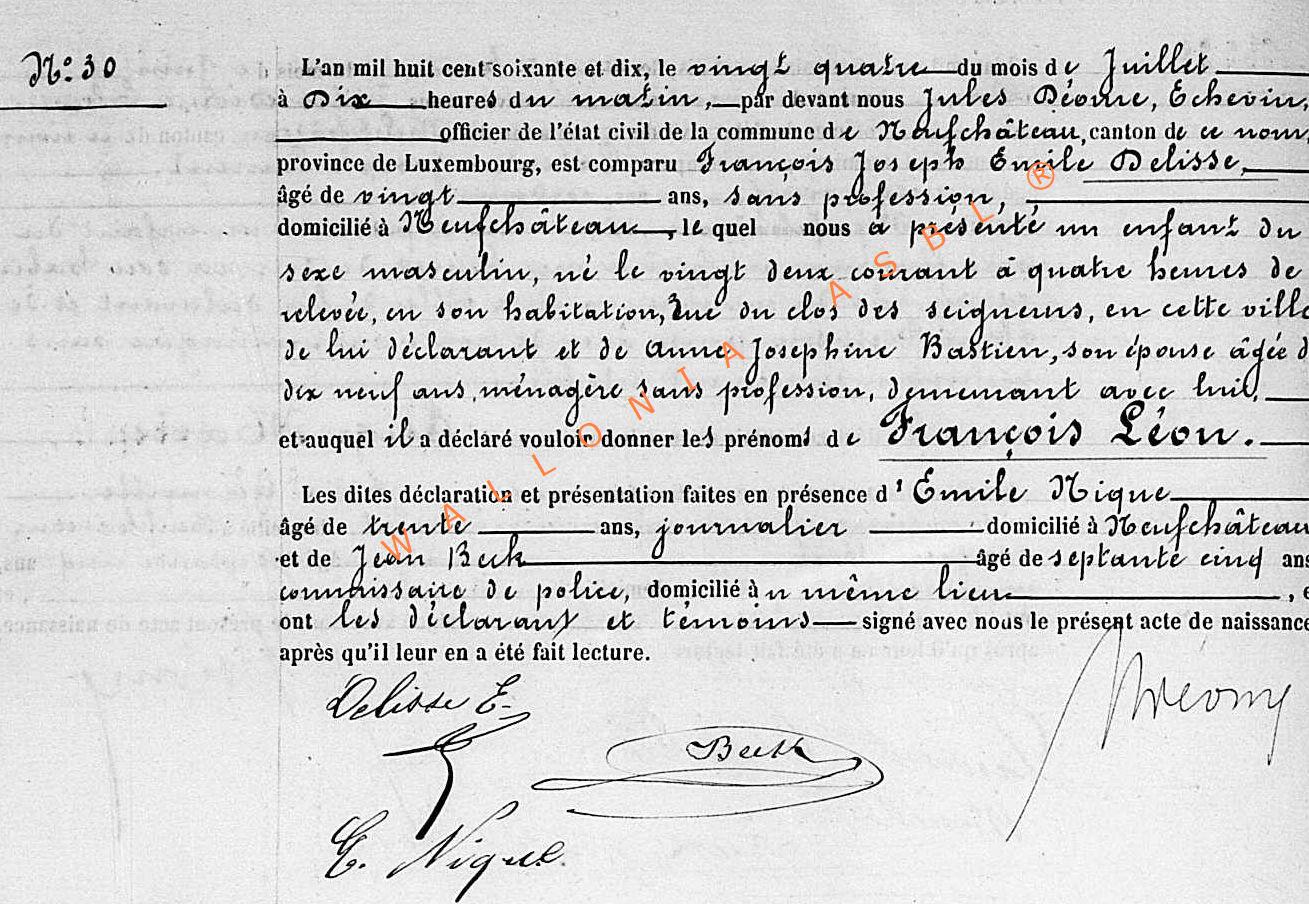 N.º 30
L'an mil huit cent soixante et dix, le vingt quatre du mois de Juillet
à Dix heures du matin, par devant nous Jules Déome, Echevin,
officier de l'état civil de la commune de Neufchâteau, canton de ce nom,
province de Luxembourg, est comparu François Joseph Emile Delisse,
âgé de vingt ans, sans profession,
domicilié à Neufchâteau, le quel nous a présenté un enfant du
sexe masculin, né le vingt deux courant à quatre heures de
relevée, en son habitation, Rue du clos des seigneurs, en cette ville
de lui déclarant et de Anne Josephine Bastien, son épouse âgée d
dix neuf ans, ménagère sans profession, demeurant avec lui,
et auquel il a déclaré vouloir donner les prénoms de François Léon.
Les dites déclaration et présentation faites en présence d' Emile Nique
âgé de trente ans, journalier domicilié à Neufchâteau
et de Jean Beck âgé de septante cinq ans
commissaire de police, domicilié àu même lieu, e
ont les déclarant et témoins signé avec nous le présent acte de naissance
après qu'il leur en a été fait lecture.
Delisse E.
Beck
E. Nique
WALLONIA ASBL ®